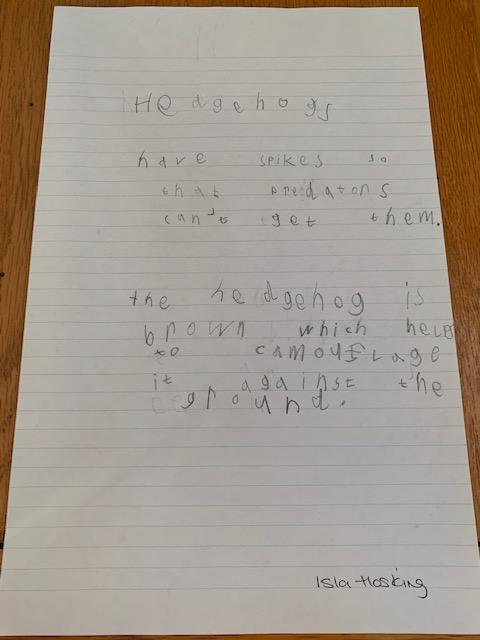 HEdgehogs
have spikes so
that predators
can't get them.
the hedgehog is
brown which help
to camouflage
it against the
ground.
Isla Hosking